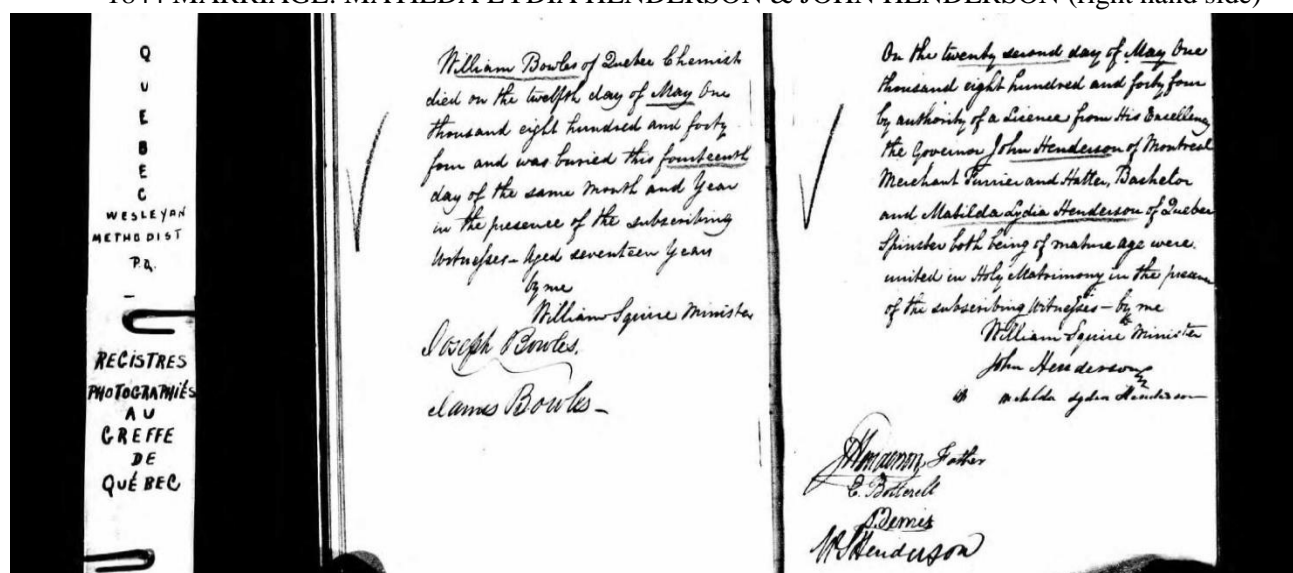 1844 MARRIAGE: MATILDA LYDIA HENDERSON & JOHN HENDERSON (right hand side)
QUEBEC
WESLEYAN
METHODIST
P.Q.
REGISTRES
PHOTOGRAPHIÉS
AU
GREFFE
DE
QUÉBEC
William Bowles of Quebec Chemist
died on the twelfth day of May One
thousand eight hundred and forty
four and was buried this fourteenth
day of the same month and Year
in the presence of the subscribing
Witnesses – Aged seventeen Years
by me
William Squire Minister
Joseph Bowles.
James Bowles –
On the twenty second day of May One
thousand eight hundred and forty four
by authority of a License from His Excellency
the Governor John Henderson of Montreal
Merchant Furrier and Hatter, Bachelor
and Matilda Lydia Henderson of Quebec
Spinster both being of mature age were
united in Holy Matrimony in the presence
of the subscribing Witnesses – by me
William Squire Minister
John Henderson
Matilda Lydia Henderson
Henderson Father
E. Botterell
W S Henderson